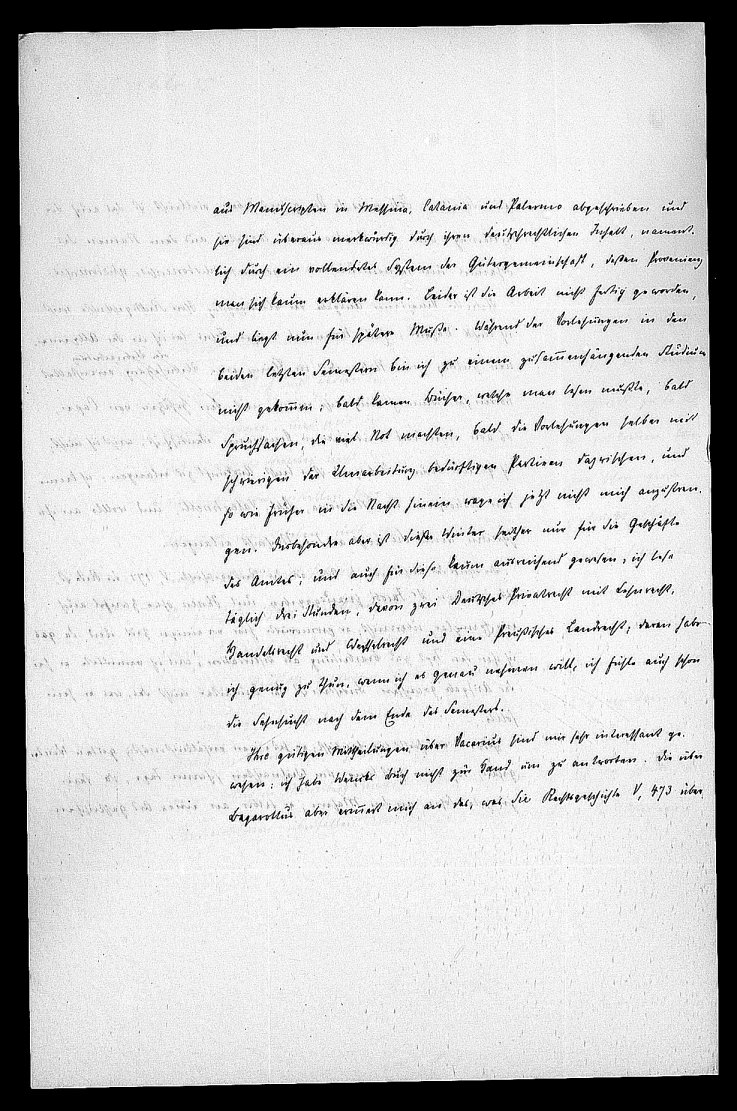 aus Manuscripten in Messina, Catania und Palermo abgeschrieben und
sie sind überaus merkwürdig durch ihren deutschrechtlichen Inhalt, nament-
lich durch ein vollendetes System der Gütergemeinschaft, deßen Provenienz
man sich kaum erklären kann. Leider ist die Arbeit nicht fertig geworden,
und liegt nun für spätere Muße. Während der Vorlesungen in den
beiden letzten Semestern bin ich zu einem zusammenhängenden Studium
nicht gekommen; bald kamen Bücher, welche man lesen mußte, bald
Spruchsachen, die viel Not machten, bald die Vorlesungen selber mit
schwierigen der Umarbeitung bedürftigen Partieen dazwischen, und
so wie früher in die Nacht hinein wage ich jetzt nicht mich anzustren-
gen. Insbesondre aber ist dieße Winter seither nur für die Geschäfte
des Amtes, und auch für diese kaum ausreichend gewesen, ich lese
täglich drei Stunden, davon zwei Deutsches Privatrecht mit Lehnrecht,
Handelsrecht und Wechselrecht und eine Preußisches Landrecht; daran habe
ich genug zu thun, wenn ich es genau nehmen will, ich fühle auch schon
die Sehnsucht nach dem Ende des Semesters.
Ihre gütigen Mittheilungen über Vacarius sind mir sehr interessant ge-
wesen; ich habe Wencks Buch nicht zur Hand um zu antworten. Die über
Bagarottus aber erinnert mich an das, was Sie Rechtsgeschichte V, 473 über